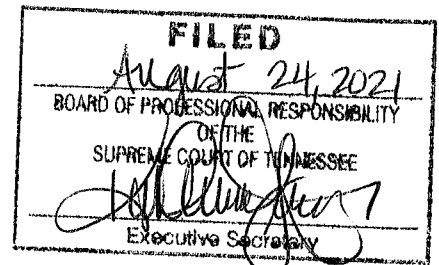 FILED
August 24, 2021
BOARD OF PROFESSIONAL RESPONSIBILITY
OF THE
SUPREME COURT OF TENNESSEE
Executive Secretary